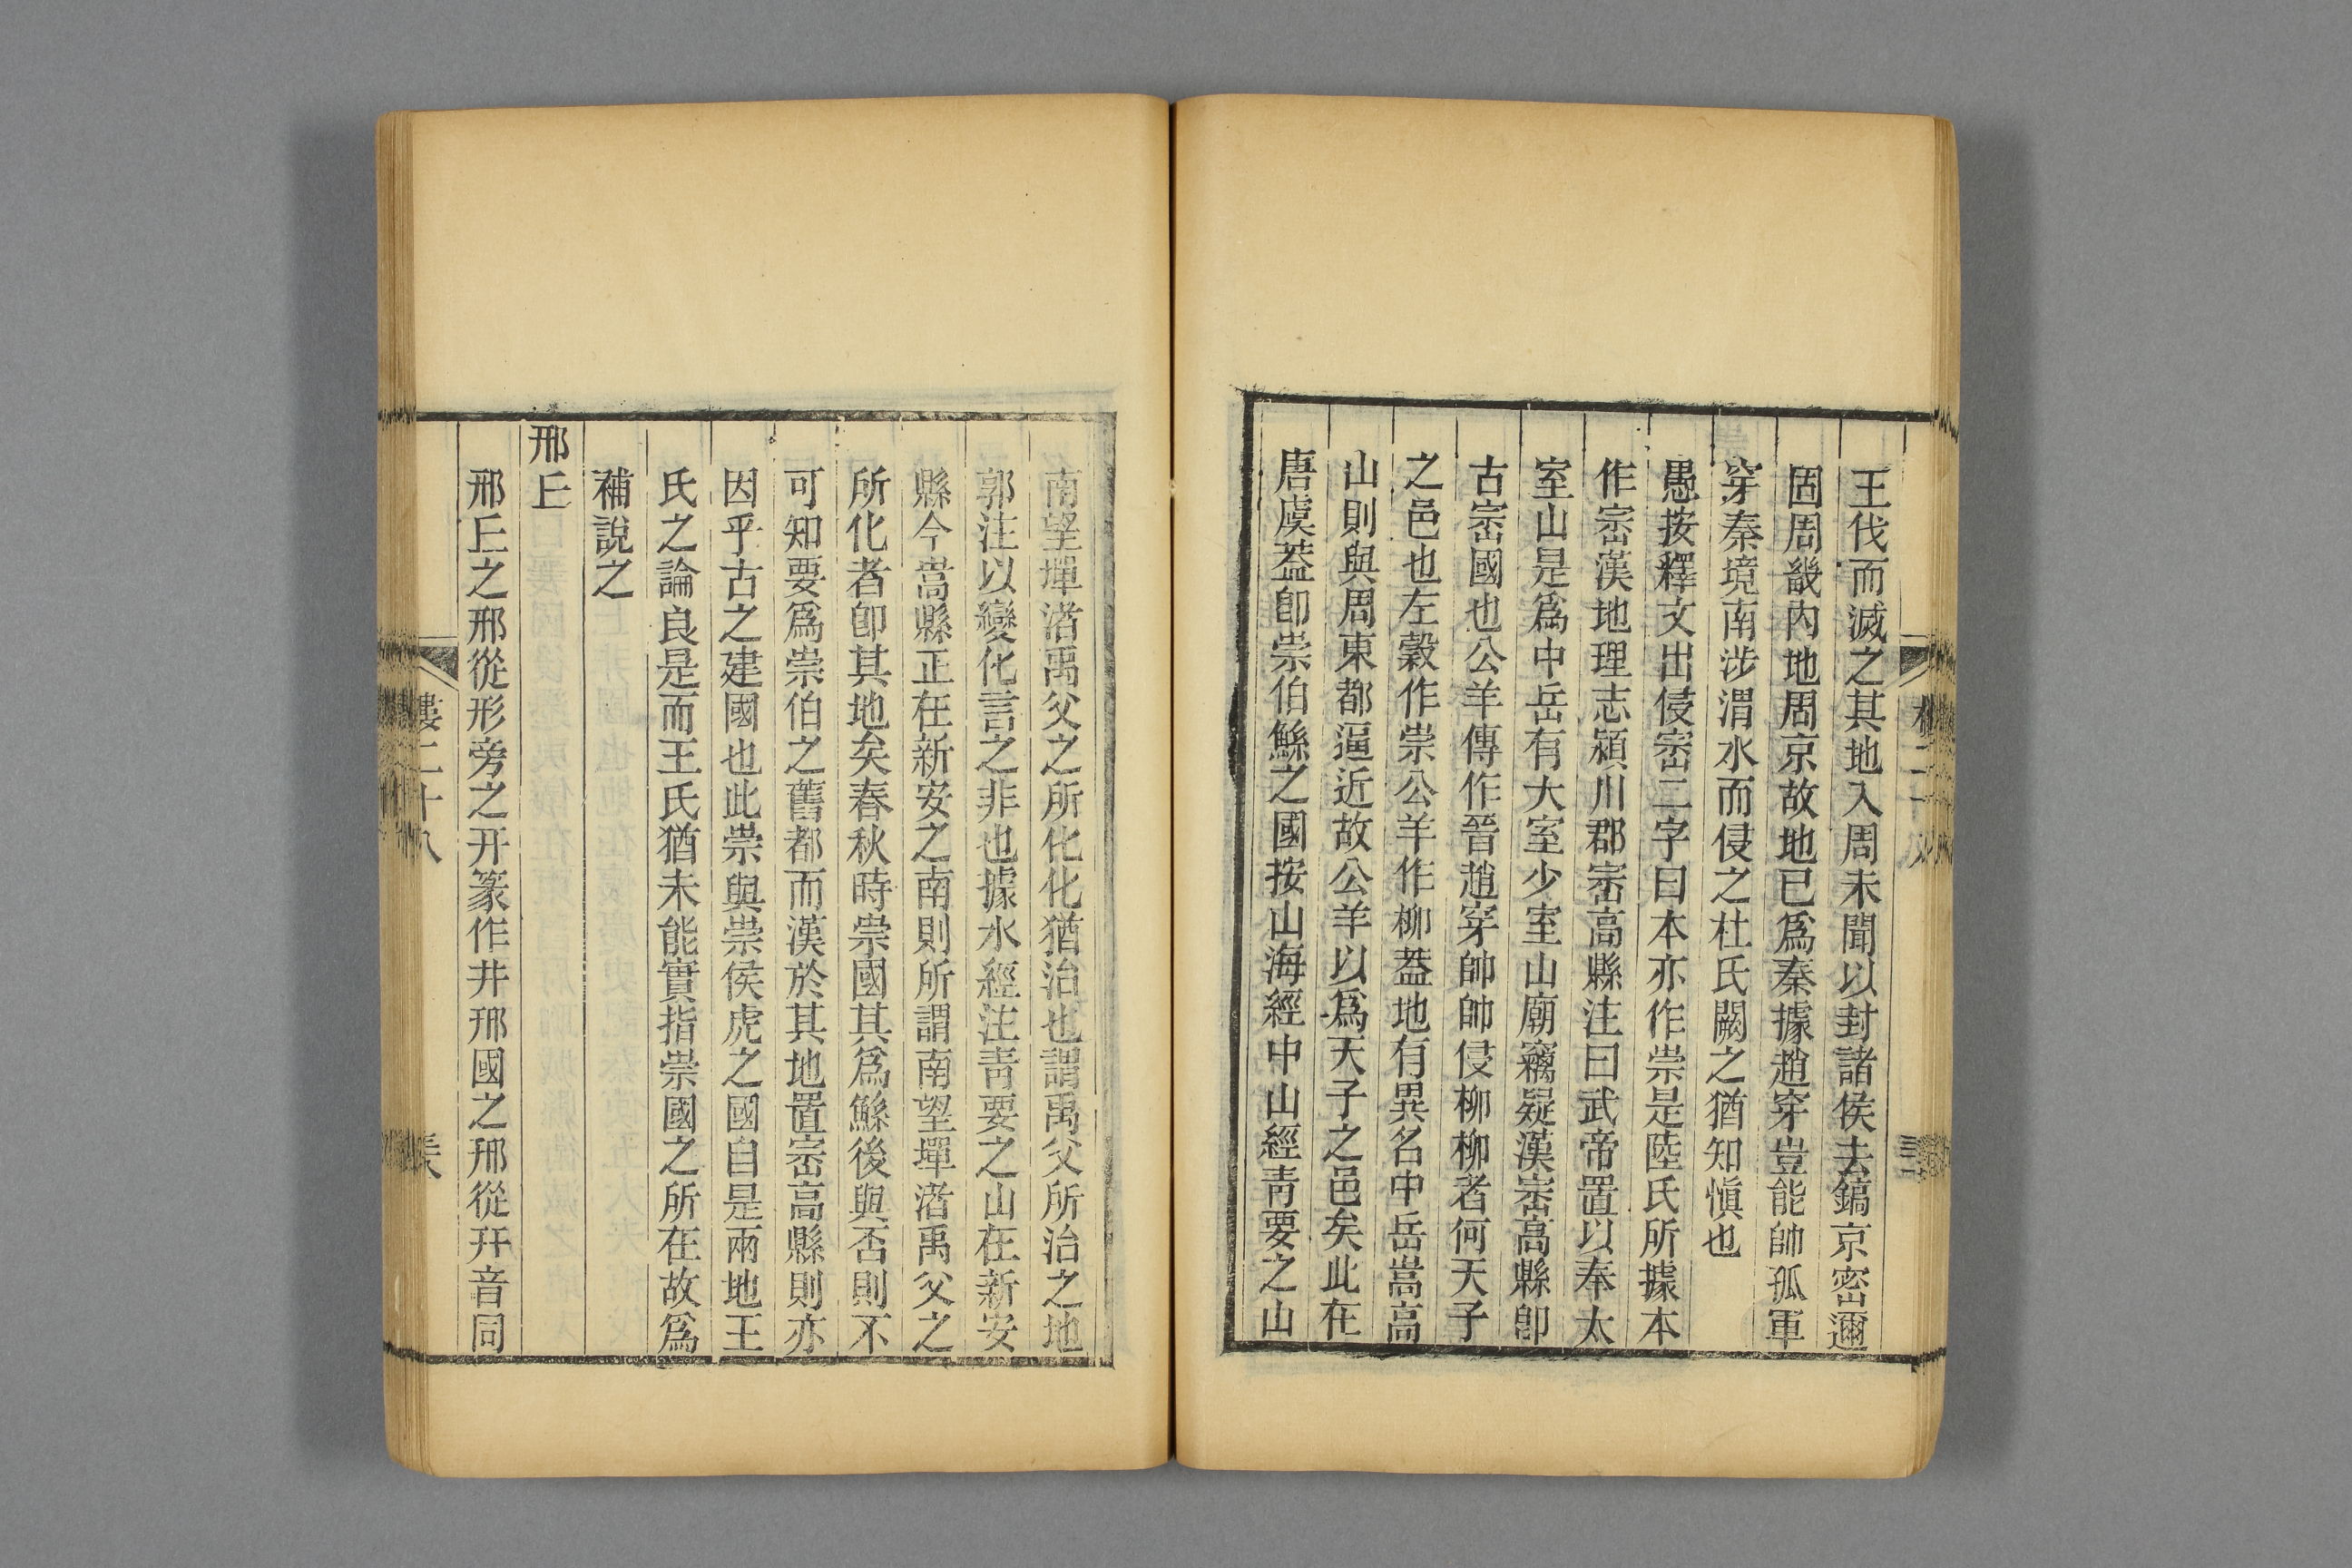 王伐而滅之其地入周未聞以封諸侯去鎬京密邇
固周畿內地周京故地已爲秦據趙穿豈能帥孤軍
穿秦境南涉渭水而侵之杜氏闕之猶知愼也
愚按釋文出侵崈二字曰本亦作崇是陸氏所據本
作崈漢地理志潁川郡崈高縣注曰武帝置以奉太
室山是爲中岳有大室少室山廟竊疑漢崈高縣卽
古崈國也公羊傳作晉趙穿帥帥侵柳柳者何天子
之邑也左穀作崇公羊作柳葢地有異名中岳嵩高
山則與周東都逼近故公羊以爲天子之邑矣此在
唐虞葢卽崇伯鯀之國按山海經中山經靑要之山
南望墠渚禹父之所化化猶治也謂禹父所治之地
郭注以變化言之非也據水經注靑要之山在新安
縣今嵩縣正在新安之南則所謂南望墠渚禹父之
所化者卽其地矣春秋時崇國其爲鯀後與否則不
可知要爲崇伯之舊都而漢於其地置崈高縣則亦
因乎古之建國也此崇與崇侯虎之國自是兩地王
氏之論良是而王氏猶未能實指崇國之所在故爲
補說之
邢𠀌
邢𠀌之邢從形旁之开篆作井邢國之邢從幵音同
樓二十八